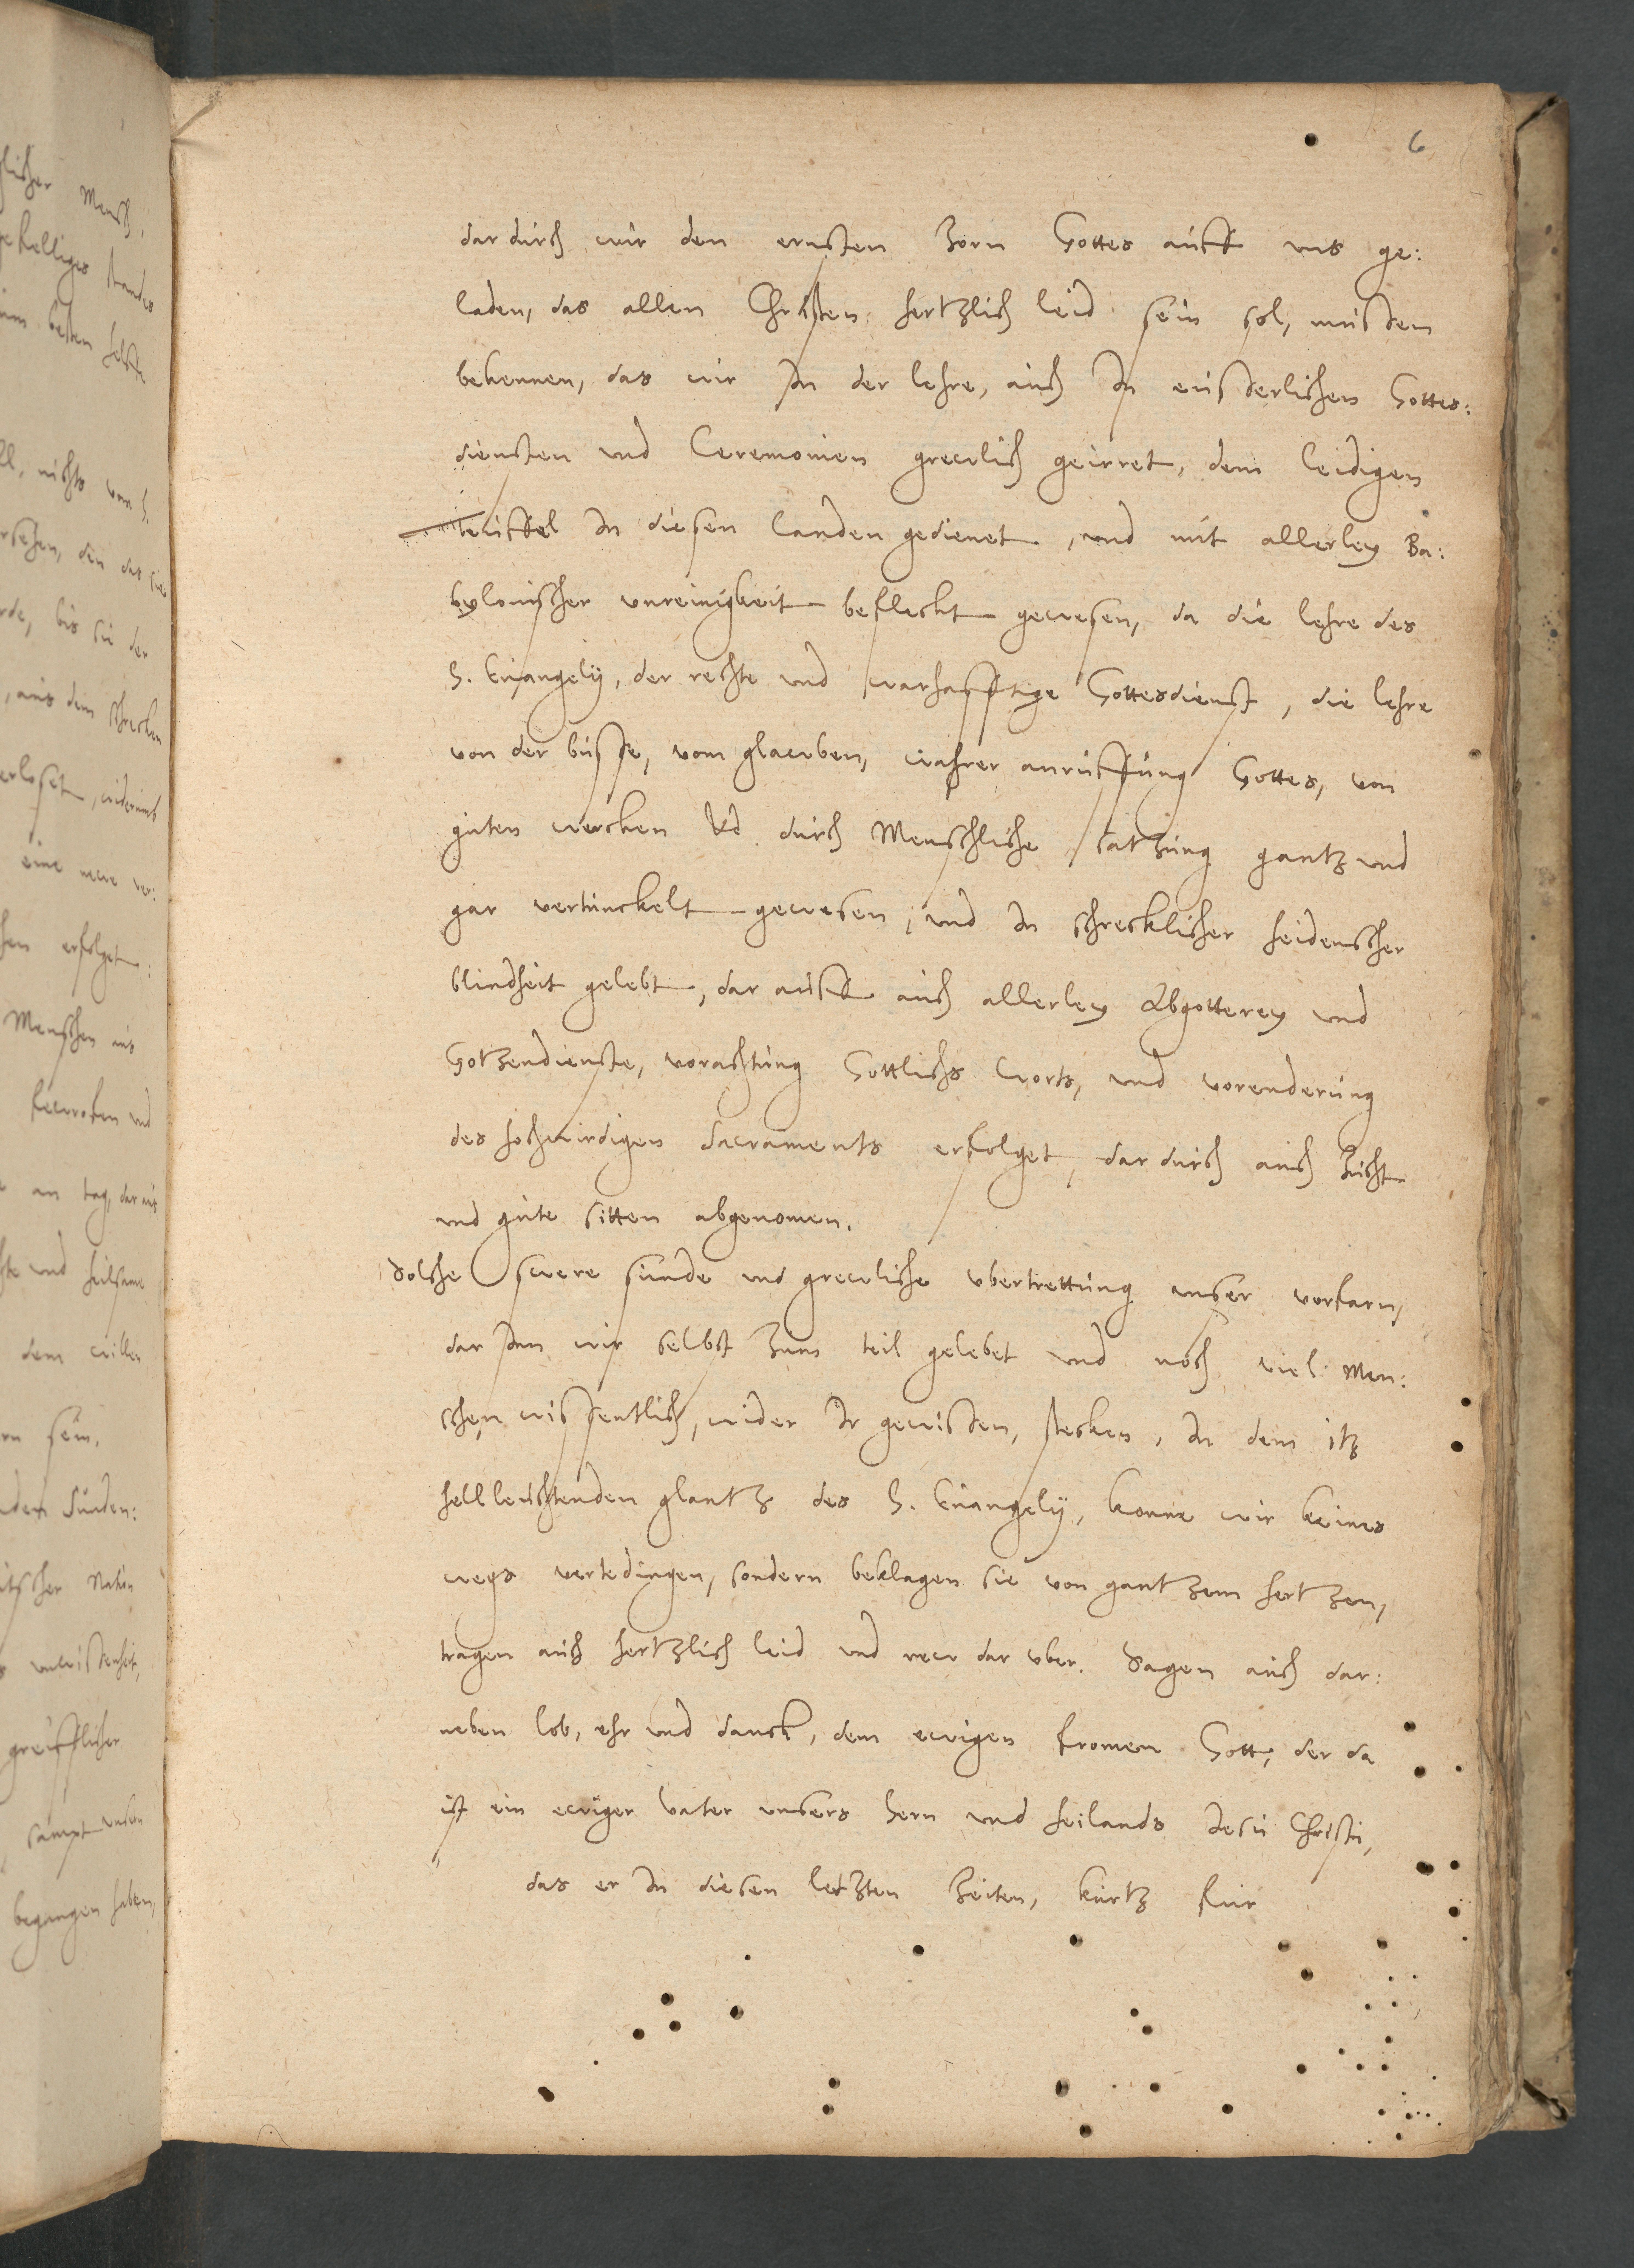 6
dar durch wir den ernsten Zorn Gottes auff uns ge:
laden, das allen Christen hertzlich leid sein sol, musten
bekennen, das wir In der lehre, auch In eusserlichen Gottes:
diensten und Ceremonien grewlich geirret, dem leidigen
teuffel In diesen landen gedienet, und mit allerley Ba:
bylonischer unreinigkeit befleckt gewesen, da die lehre des
H. Euangelij, der rechte und warhafftige Gottesdienst, die lehre
von der busse, vom glawben, wahrer anruffung Gottes, von
guten wercken Vnd durch Menschliche satzung gantz und
gar vertunckelt gewesen, und In schrecklicher heidenscher
blindheit gelebt, dar auff auch allerley Abgotterey und
Gotzendienste, vorachtung Gottlichs worts, und vorenderung
des hochwirdigen Sacraments erfolget, dar durch auch Zucht
und gute sitten abgenomen.
Solche swere sunde und grewliche vbertrettung unser vorfarn,
dar Inn wir selbst Zum teil gelebet und noch viel Men:
schen wissentlich, wider Ir gewissen, stecken, In dem itz
hellleuchtenden glantz des H. Euangelij, konne wir keines
wegs vertedingen, sondern beklagen sie von gantzem hertzen,
tragen auch hertzlich leid und rew dar vber. Sagen auch dar:
neben lob, ehr und danck, dem ewigen fromen Gott, der da
ist ein ewiger Vater unsers hern und heilands Jesu Christi,
das er In diesen letzten Zeiten, kurtz fur